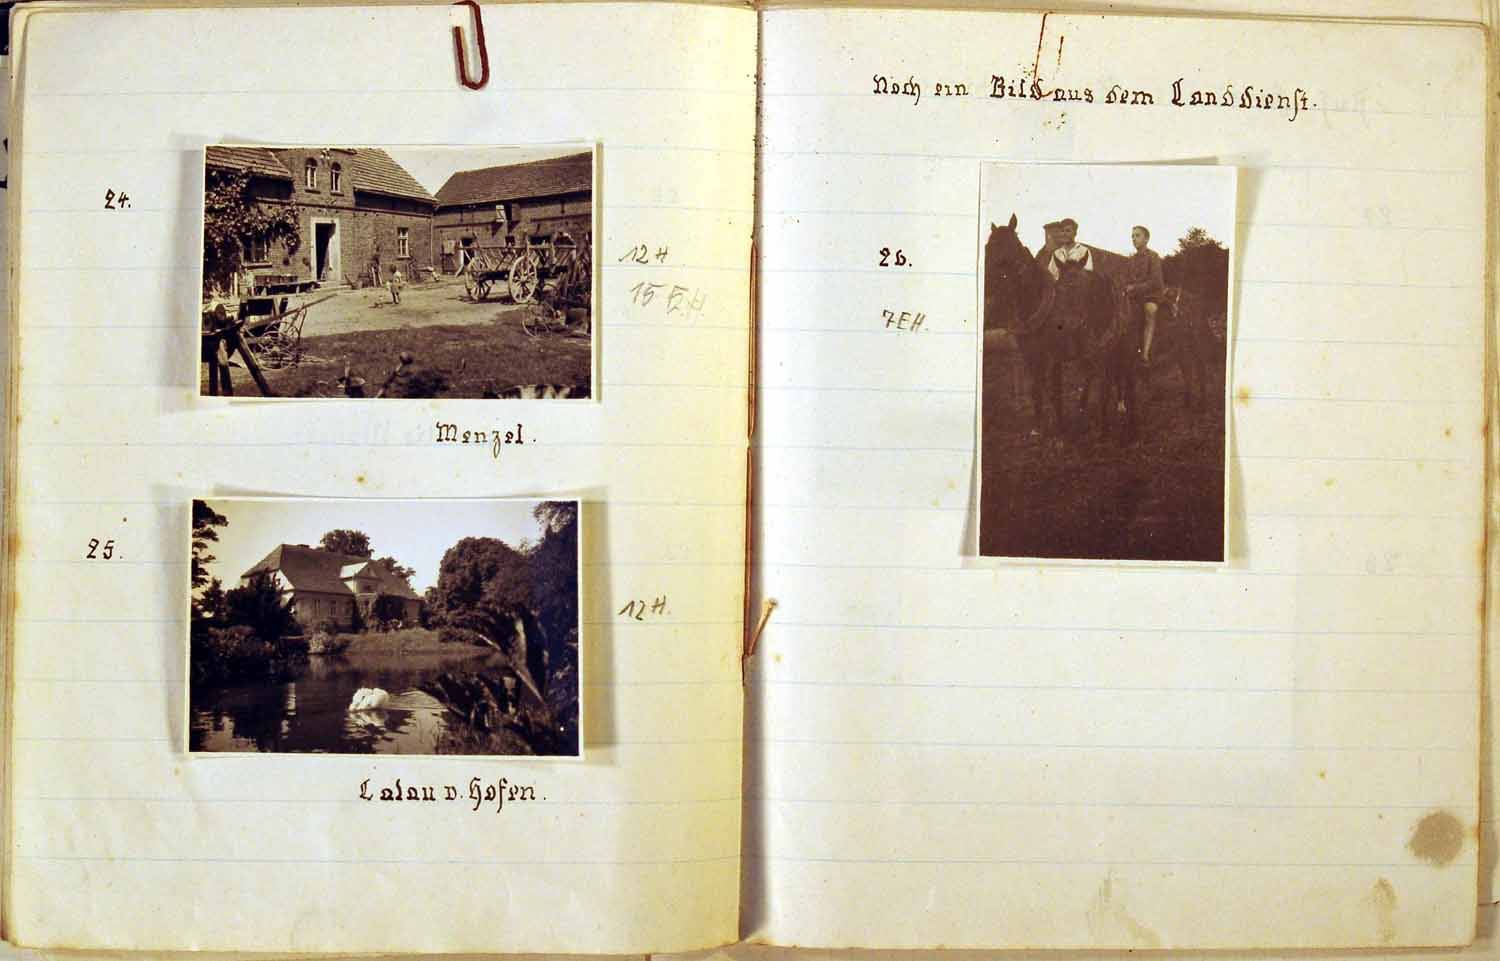 24.
12 H
15 E.H.
Menzel.
25.
12 H.
Calau v. Hofen.
Noch ein Bild aus dem Landdienst.
26.
7 EH.